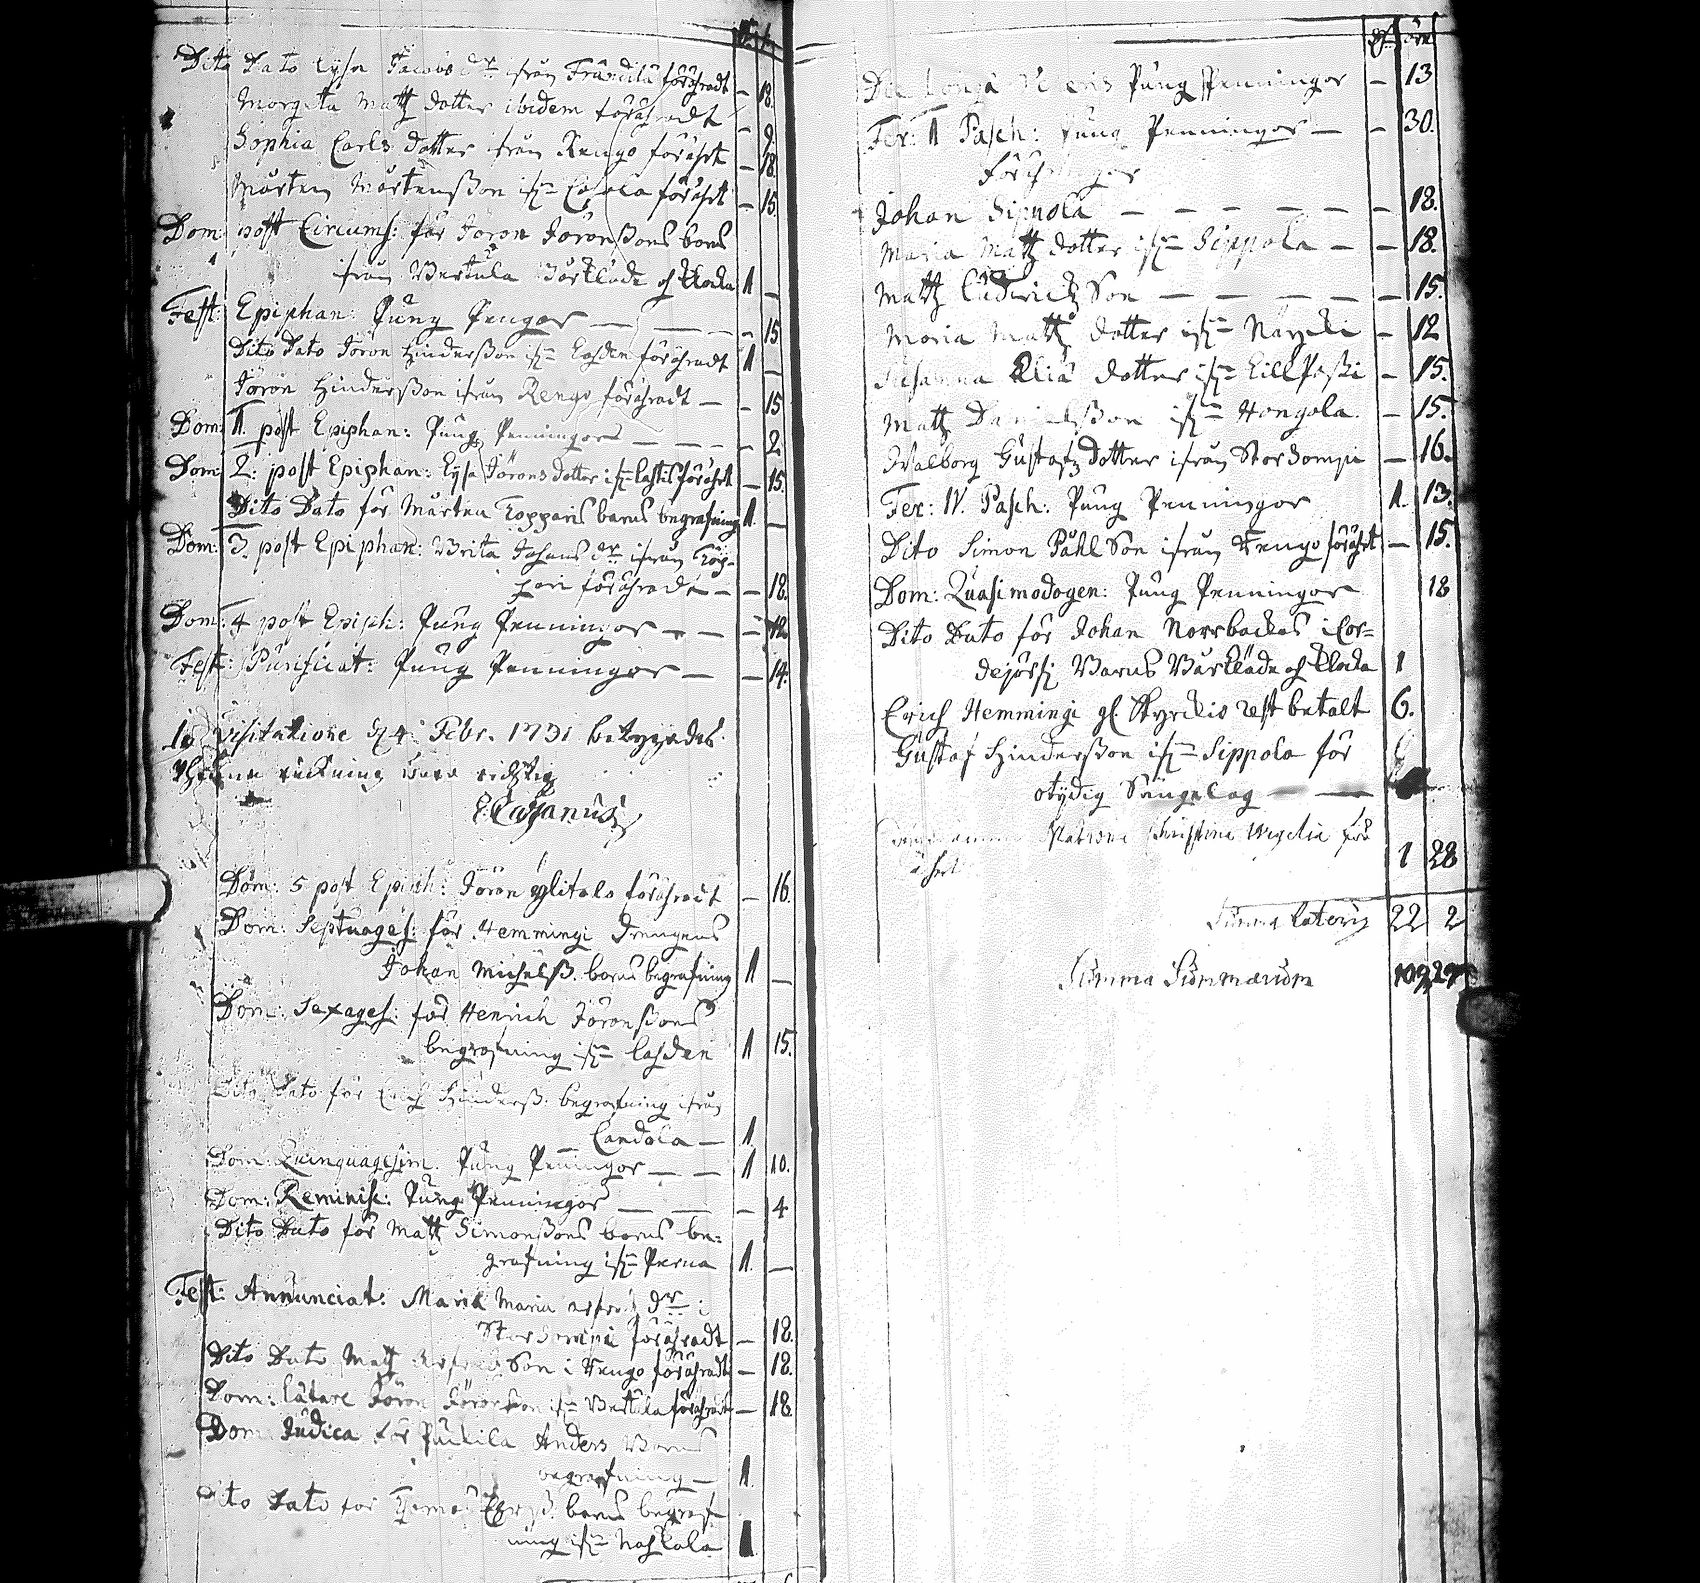 Dito Dato Lysa Jacobs dr ifrån förähradt – 18.
Margeta Matz dotter ibidem förähradt – 9.
Sophia Carls dotter ifrån Rengo förährt – 18.
Mårten Mårtensson ifr: förährt – 15.
Dom: post Circums: för Jöran Jöranssons barns
ifrån Bertula Bårkläde och klocka 1 –
Fest: Epiphan: Pung Pengar – – – 15
Dito Dato Jöran Hindersson ifr: Lahden förähradt 1 –
Jöran Hindersson ifrån Rengo förähradt – – 15
Dom: 1. post Epiphan: Pung Penningar – – – 2
Dom: 2: post Epiphan: Lysa Jörans dotter ifr: förährt – 15.
Dito Dato för Mårten Kopparis barns begrafning 1 –
Dom: 3. post Epiphan: Brita Johans dr ifrån Kop-
pari förährade – – 18.
Dom: 4 post Epiph: Pung Penningar – – – 12
Fest: Purificat: Pung Penningar – – 14.
In Visitatione d. 4 Febr. 1731 betygades
thenna räckning vara richtig
E Cajanus
Dom: 5 post Epiph: Jöran Ylitalo förähradt – 16.
Dom: Septuages: för Hemmingi drengens
Johan Michelss. barns begrafning 1 –
Dom: Sexages: för Henrich Jöranssons
begrafning ifr: Lahden 1 15.
Dito Dato för Erich Hinderss: begrafning ifrån
Candola – 1.
Dom: Quinquagesim. Pung Peningar – – 1 10.
Dom: Reminisc: Pung Penningar – – – 4
Dito Dato för Matt Simonssons barns be-
grafning ifr: Perna 1. –
Fest: Annunciat: Mariæ Maria dr i
Storsompi förähradt – 18.
Dito Dato Matz Son i Hengo förähradt – 18.
Dom: Lätare Jöran Jöransson ifr: Bertula förähradt – 18.
Dom: Judica för Puckila Anders Barns
begrafning – 1.
Dito Dato för barns begraf
ning ifr: 1
Pung Penningar – 13
Fer: 1 Pasch: Pung Penningar – – 30.
Johan Sippola – – – – – – 18.
Maria Matz dotter ifr: Sippola – – 18.
Matz Ludwichz Son – – – – – 15.
Maria Matz dotter ifr: – 12
Susanna Eliæ dotter ifr: – 15.
Matz Danielsson ifr: Hongola. – 15.
Walborg Gustafz dotter ifrån Storsompi – 16.
Fer: IV. Pasch: Pung Penningar 1. 13.
Dito Simon Påhl Son ifrån Hengo förährt – 15.
Dom: Quasimodogen: Pung Penningar 18
Dito Dato för Johan Norrbackas i Cor-
Barns Bårkläde och klocka 1
Erich Hemmingi gl. Styrckis rest betalt 6.
Gustaf Hindersson ifr: Sippola för
otydig Sängelag – –
Matrona Christina Wegelia för
ährt 1 28
Summa Lateris 22 2
Summa Summarum 109 29